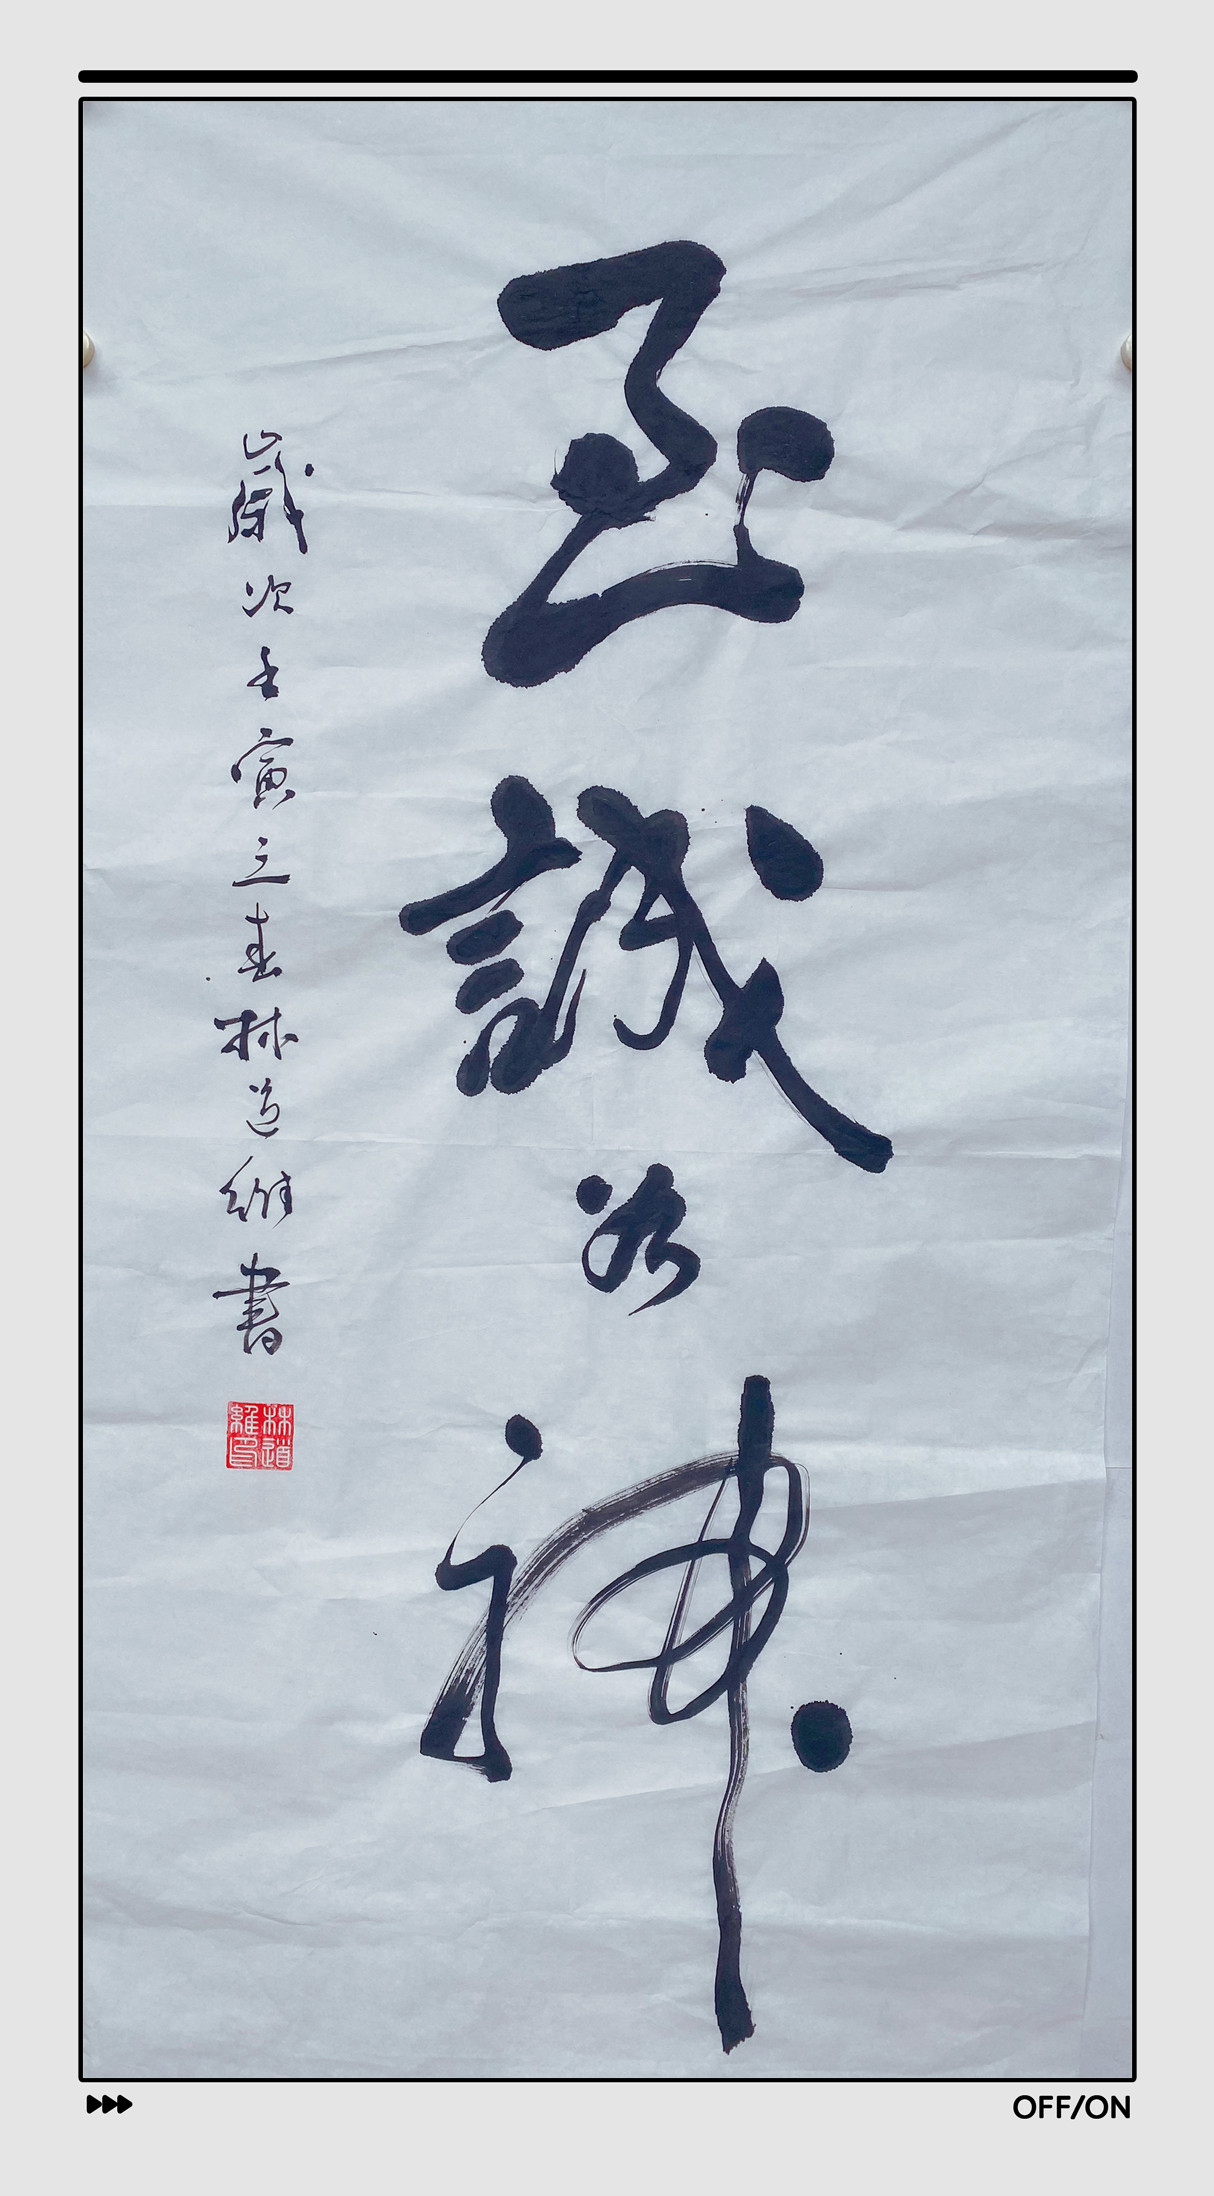 至誠如神
歲次壬寅立春林道維書
林道維印
OFF/ON